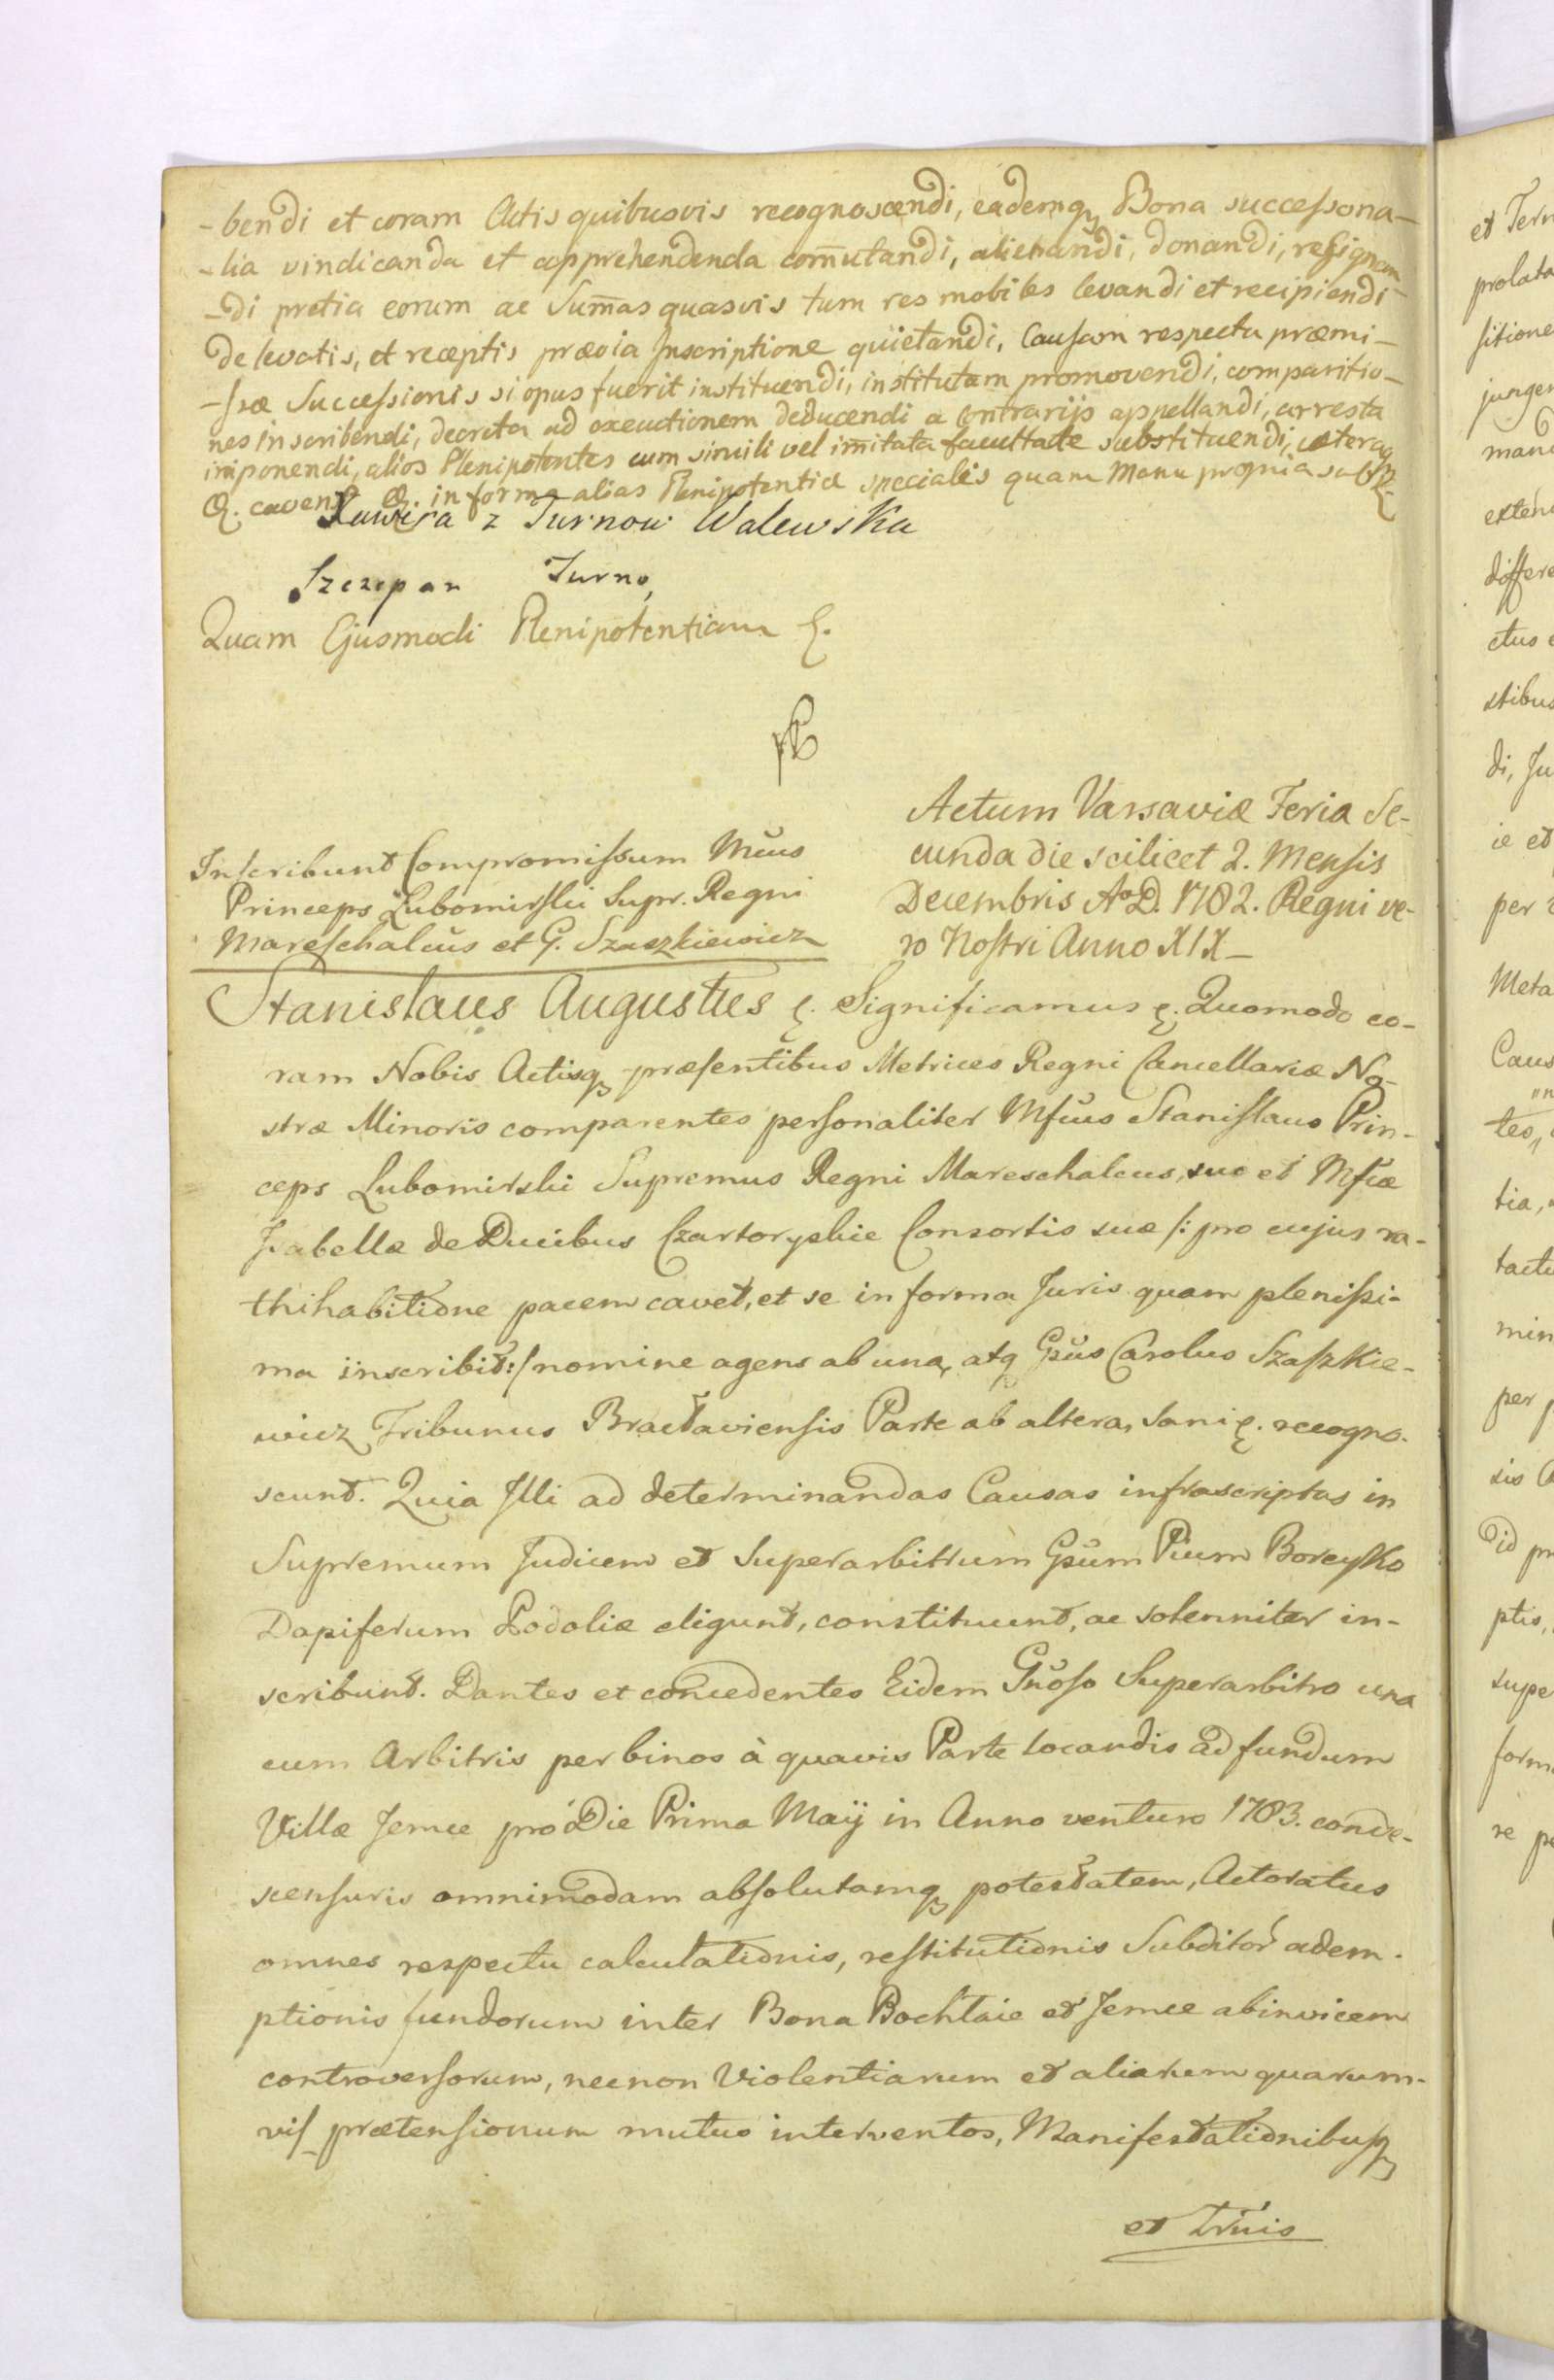 -bendi et coram Actis quibusvis recognoscendi, eademq, Bona successona-
-lia vindicanda et apprehendenda com̄utandi, alienandi, donandi, resignan-
-di pretia eorum ac Sum̄as quasvis tum res mobiles levandi et recipiendi
de levatis, et receptis prævia Inscriptione quietandi, Causam respectu præmi-
-ssæ Successionis si opus fuerit instituendi, institutam promovendi, comparitio-
nes inscribendi, decreta ad exeuctionem deducendi a Contrarijs appellandi, arresta
imponendi, alios Plenipotentes cum simili vel im̄itata facultate substituendi, cæteraq
&. cavens &. in forma alias Plenipotentiæ specialis quam Manu propria
Xawera z Turnow Walewska
Szczepan Turno,
Quam Ejusmodi Plenipotentiam &.
Inscribunt Compromissum Mcus
Princeps Lubomirski Supr. Regni
Mareschalcus et G. Szaszkiewicz
Actum Varsaviæ Feria Se-
cunda die scilicet 2. Mensis
Decembris Ao D. 1782. Regni ve-
ro Nostri Anno XIX-
Stanislaus Augustus &. Significamus &. Quomodo co-
ram Nobis Actisq præsentibus Metrices Regni Cancellariæ No-
stræ Minoris comparentes personaliter Mfcus Stanislaus Prin-
ceps Lubomirski Supremus Regni Mareschalcus, suo et Mfcæ
Isabellæ de Ducibus Czartoryskie Consortis suæ /: pro cujus ra-
thihabitione pacem cavet, et se in forma Juris quam plenissi-
ma inscribit :/ nomine agens ab una, atq Gsus Carolus Szaszkie-
wicz Tribunus Bractaviensis Parte ab altera, sani &. recogno-
scunt. Quia Illi ad determinandas Causas infrascriptas in
Supremum Judicem et Superarbitrum Gsum Pium Boreyko
Dapiferum Podoliæ eligunt, constituunt, ac solenniter in-
scribunt. Dantes et concedentes Eidem Gnoso Superarbitro una
cum Arbitris per binos à quavis Parte locandis ad fundum
Villæ Jemce pro Die Prima Maij in Anno venturo 1783. conde-
scensuris omnimodam absolutamq potestatem, Actoratus
omnes respectu calculationis, restitutionis Subditor adem-
ptionis fundorum inter Bona Bochtaie et Jemce abinvicem
controversorum, necnon Violentiarum et aliarum quarum-
vis prætensionum mutuo interventos, Manifestationibusq
et Trnis